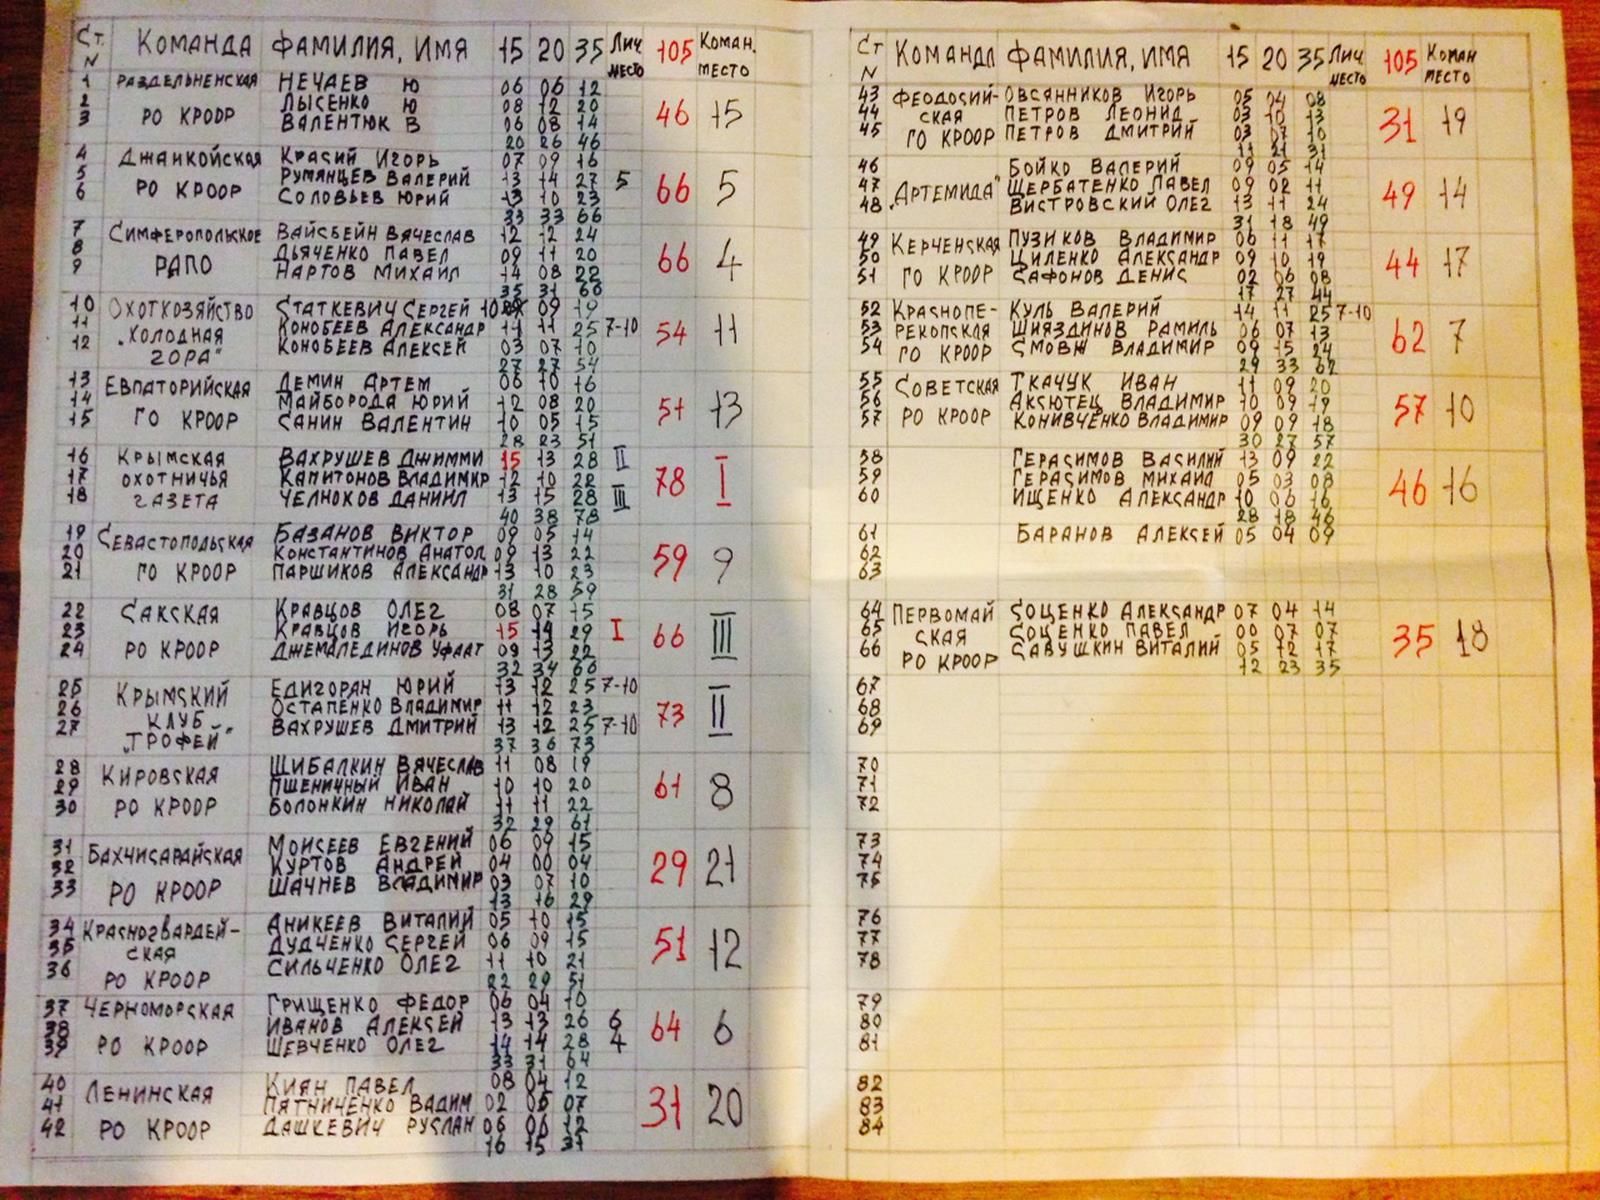 Ст. N КОМАНДА ФАМИЛИЯ, ИМЯ 15 20 35 ЛИЧ. МЕСТО 105 КОМАН. МЕСТО
1 РАЗДЕЛЬНЕНСКАЯ НЕЧАЕВ Ю 06 06 12
2 РО КРООР ЛЫСЕНКО Ю 08 12 20 46 15
3 ВАЛЕНТЮК В 06 08 14
20 26 46
4 ДЖАНКОЙСКАЯ КРАСИЙ ИГОРЬ 07 09 16
5 РО КРООР РУМЯНЦЕВ ВАЛЕРИЙ 13 14 27 5 66 5
6 СОЛОВЬЕВ ЮРИЙ 13 10 23
33 33 66
7 СИМФЕРОПОЛЬСКОЕ ВАЙСБЕЙН ВЯЧЕСЛАВ 12 12 24
8 РАПО ДЬЯЧЕНКО ПАВЕЛ 09 11 20 66 4
9 НАРТОВ МИХАИЛ 14 08 22
35 31 66
10 ОХОТХОЗЯЙСТВО СТАТКЕВИЧ СЕРГЕЙ 10 09 19
11 „ХОЛОДНАЯ КОНОБЕЕВ АЛЕКСАНДР 14 11 25 7-10 54 11
12 ГОРА" КОНОБЕЕВ АЛЕКСЕЙ 03 07 10
27 27 54
13 ЕВПАТОРИЙСКАЯ ДЕМИН АРТЕМ 06 10 16
14 ГО КРООР МАЙБОРОДА ЮРИЙ 12 08 20 51 13
15 САНИН ВАЛЕНТИН 10 05 15
28 23 51
16 КРЫМСКАЯ ВАХРУШЕВ ДЖИММИ 15 13 28 II
17 ОХОТНИЧЬЯ КАПИТОНОВ ВЛАДИМИР 12 10 22 78 I
18 ГАЗЕТА ЧЕЛНОКОВ ДАНИИЛ 13 15 28 III
40 38 78
19 СЕВАСТОПОЛЬСКАЯ БАЗАНОВ ВИКТОР 09 05 14
20 ГО КРООР КОНСТАНТИНОВ АНАТОЛ 09 13 22 59 9
21 ПАРШИКОВ АЛЕКСАНДР 13 10 23
31 28 59
22 САКСКАЯ КРАВЦОВ ОЛЕГ 08 07 15
23 РО КРООР КРАВЦОВ ИГОРЬ 15 14 29 I 66 III
24 ДЖЕМАЛЕДИНОВ УФААТ 09 13 22
32 34 66
25 КРЫМСКИЙ ЕДИГОРАН ЮРИЙ 13 12 25 7-10
26 КЛУБ ОСТАПЕНКО ВЛАДИМИР 11 12 23 73 II
27 „ТРОФЕЙ" ВАХРУШЕВ ДМИТРИЙ 13 12 25 7-10
37 36 73
28 КИРОВСКАЯ ШИБАЛКИН ВЯЧЕСЛАВ 11 08 19
29 РО КРООР ПШЕНИЧНЫЙ ИВАН 10 10 20 61 8
30 БОЛОНКИН НИКОЛАЙ 11 11 22
32 29 61
31 БАХЧИСАРАЙСКАЯ МОИСЕЕВ ЕВГЕНИЙ 06 09 15
32 РО КРООР КУРТОВ АНДРЕЙ 04 00 04 29 21
33 ШАЧНЕВ ВЛАДИМИР 03 07 10
13 16 29
34 КРАСНОГВАРДЕЙ- АНИКЕЕВ ВИТАЛИЙ 05 10 15
35 СКАЯ ДУДЧЕНКО СЕРГЕЙ 06 09 15 51 12
36 РО КРООР СИЛЬЧЕНКО ОЛЕГ 11 10 21
22 29 51
37 ЧЕРНОМОРСКАЯ ГРИЩЕНКО ФЕДОР 06 04 10
38 РО КРООР ИВАНОВ АЛЕКСЕЙ 13 13 26 6 64 6
39 ШЕВЧЕНКО ОЛЕГ 14 14 28 4
33 31 64
40 ЛЕНИНСКАЯ КИЯН ПАВЕЛ 08 04 12
41 РО КРООР ПЯТНИЧЕНКО ВАДИМ 02 05 07 31 20
42 ДАШКЕВИЧ РУСЛАН 06 06 12
16 15 31
Ст N КОМАНДА ФАМИЛИЯ, ИМЯ 15 20 35 ЛИЧ. МЕСТО 105 КОМАН МЕСТО
43 ФЕОДОСИЙ- ОВСЯННИКОВ ИГОРЬ 05 04 08
44 СКАЯ ПЕТРОВ ЛЕОНИД 03 10 13 31 19
45 ГО КРООР ПЕТРОВ ДМИТРИЙ 03 07 10
11 21 31
46 БОЙКО ВАЛЕРИЙ 09 05 14
47 „АРТЕМИДА" ЩЕРБАТЕНКО ПАВЕЛ 09 02 11 49 14
48 ВИСТРОВСКИЙ ОЛЕГ 13 11 24
31 18 49
49 КЕРЧЕНСКАЯ ПУЗИКОВ ВЛАДИМИР 06 11 17
50 ГО КРООР ЦИЛЕНКО АЛЕКСАНДР 09 10 19 44 17
51 САФОНОВ ДЕНИС 02 06 08
17 27 44
52 КРАСНОПЕ- КУЛЬ ВАЛЕРИЙ 14 11 25 7-10
53 РЕКОПСКАЯ ШИЯЗДИНОВ РАМИЛЬ 06 07 13 62 7
54 ГО КРООР СМОВЖ ВЛАДИМИР 09 15 24
29 33 62
55 СОВЕТСКАЯ ТКАЧУК ИВАН 11 09 20
56 РО КРООР АКСЮТЕЦ ВЛАДИМИР 10 09 19 57 10
57 КОНИВЧЕНКО ВЛАДИМИР 09 09 18
30 27 57
58 ГЕРАСИМОВ ВАСИЛИЙ 13 09 22
59 ГЕРАСИМОВ МИХАИЛ 05 03 08 46 16
60 ИЩЕНКО АЛЕКСАНДР 10 06 16
28 18 46
61 БАРАНОВ АЛЕКСЕЙ 05 04 09
62
63
64 ПЕРВОМАЙ СОЦЕНКО АЛЕКСАНДР 07 04 14
65 СКАЯ СОЦЕНКО ПАВЕЛ 00 07 07 35 18
66 РО КРООР САВУШКИН ВИТАЛИЙ 05 12 17
12 23 35
67
68
69
70
71
72
73
74
75
76
77
78
79
80
81
82
83
84